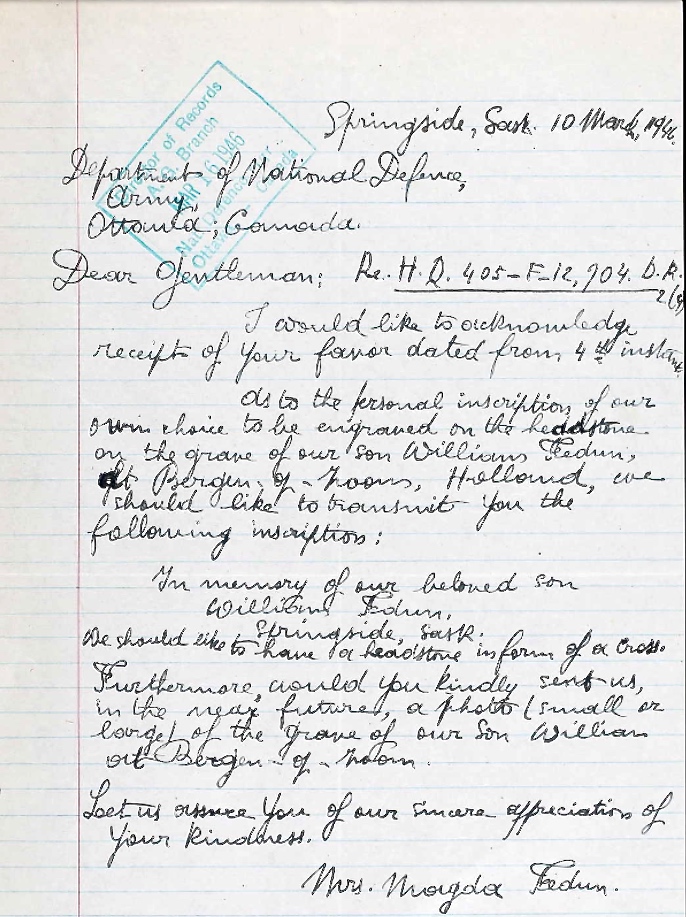 Springside, Sask. 10 March, 1946.
Director of Records
A.G. Branch
MAR 16 1946
Nat. Defence
Ottawa - Canada
Department of National Defence,
Army,
Ottawa; Canada.
Dear Gentleman; Re. H.Q. 405-F-12,904. D.R.
I would like to acknowledge
receipt of your favor dated from 4th instant.
As to the personal inscription of our
own choice to be engraved on the headstone
on the grave of our son William Fedun,
at Bergen-of-Zoom, Holland, we
should like to transmit you the
following inscription:
In memory of our beloved son
William Fedun,
Springside, Sask.
We should like to have a headstone in form of a cross.
Furthermore, would you kindly sent us,
in the near future, a photo (small or
large) of the grave of our son William
at Bergen-of-Zoom.
Let us assure you of our sincere appreciation of
your kindness.
Mrs. Magda Fedun.